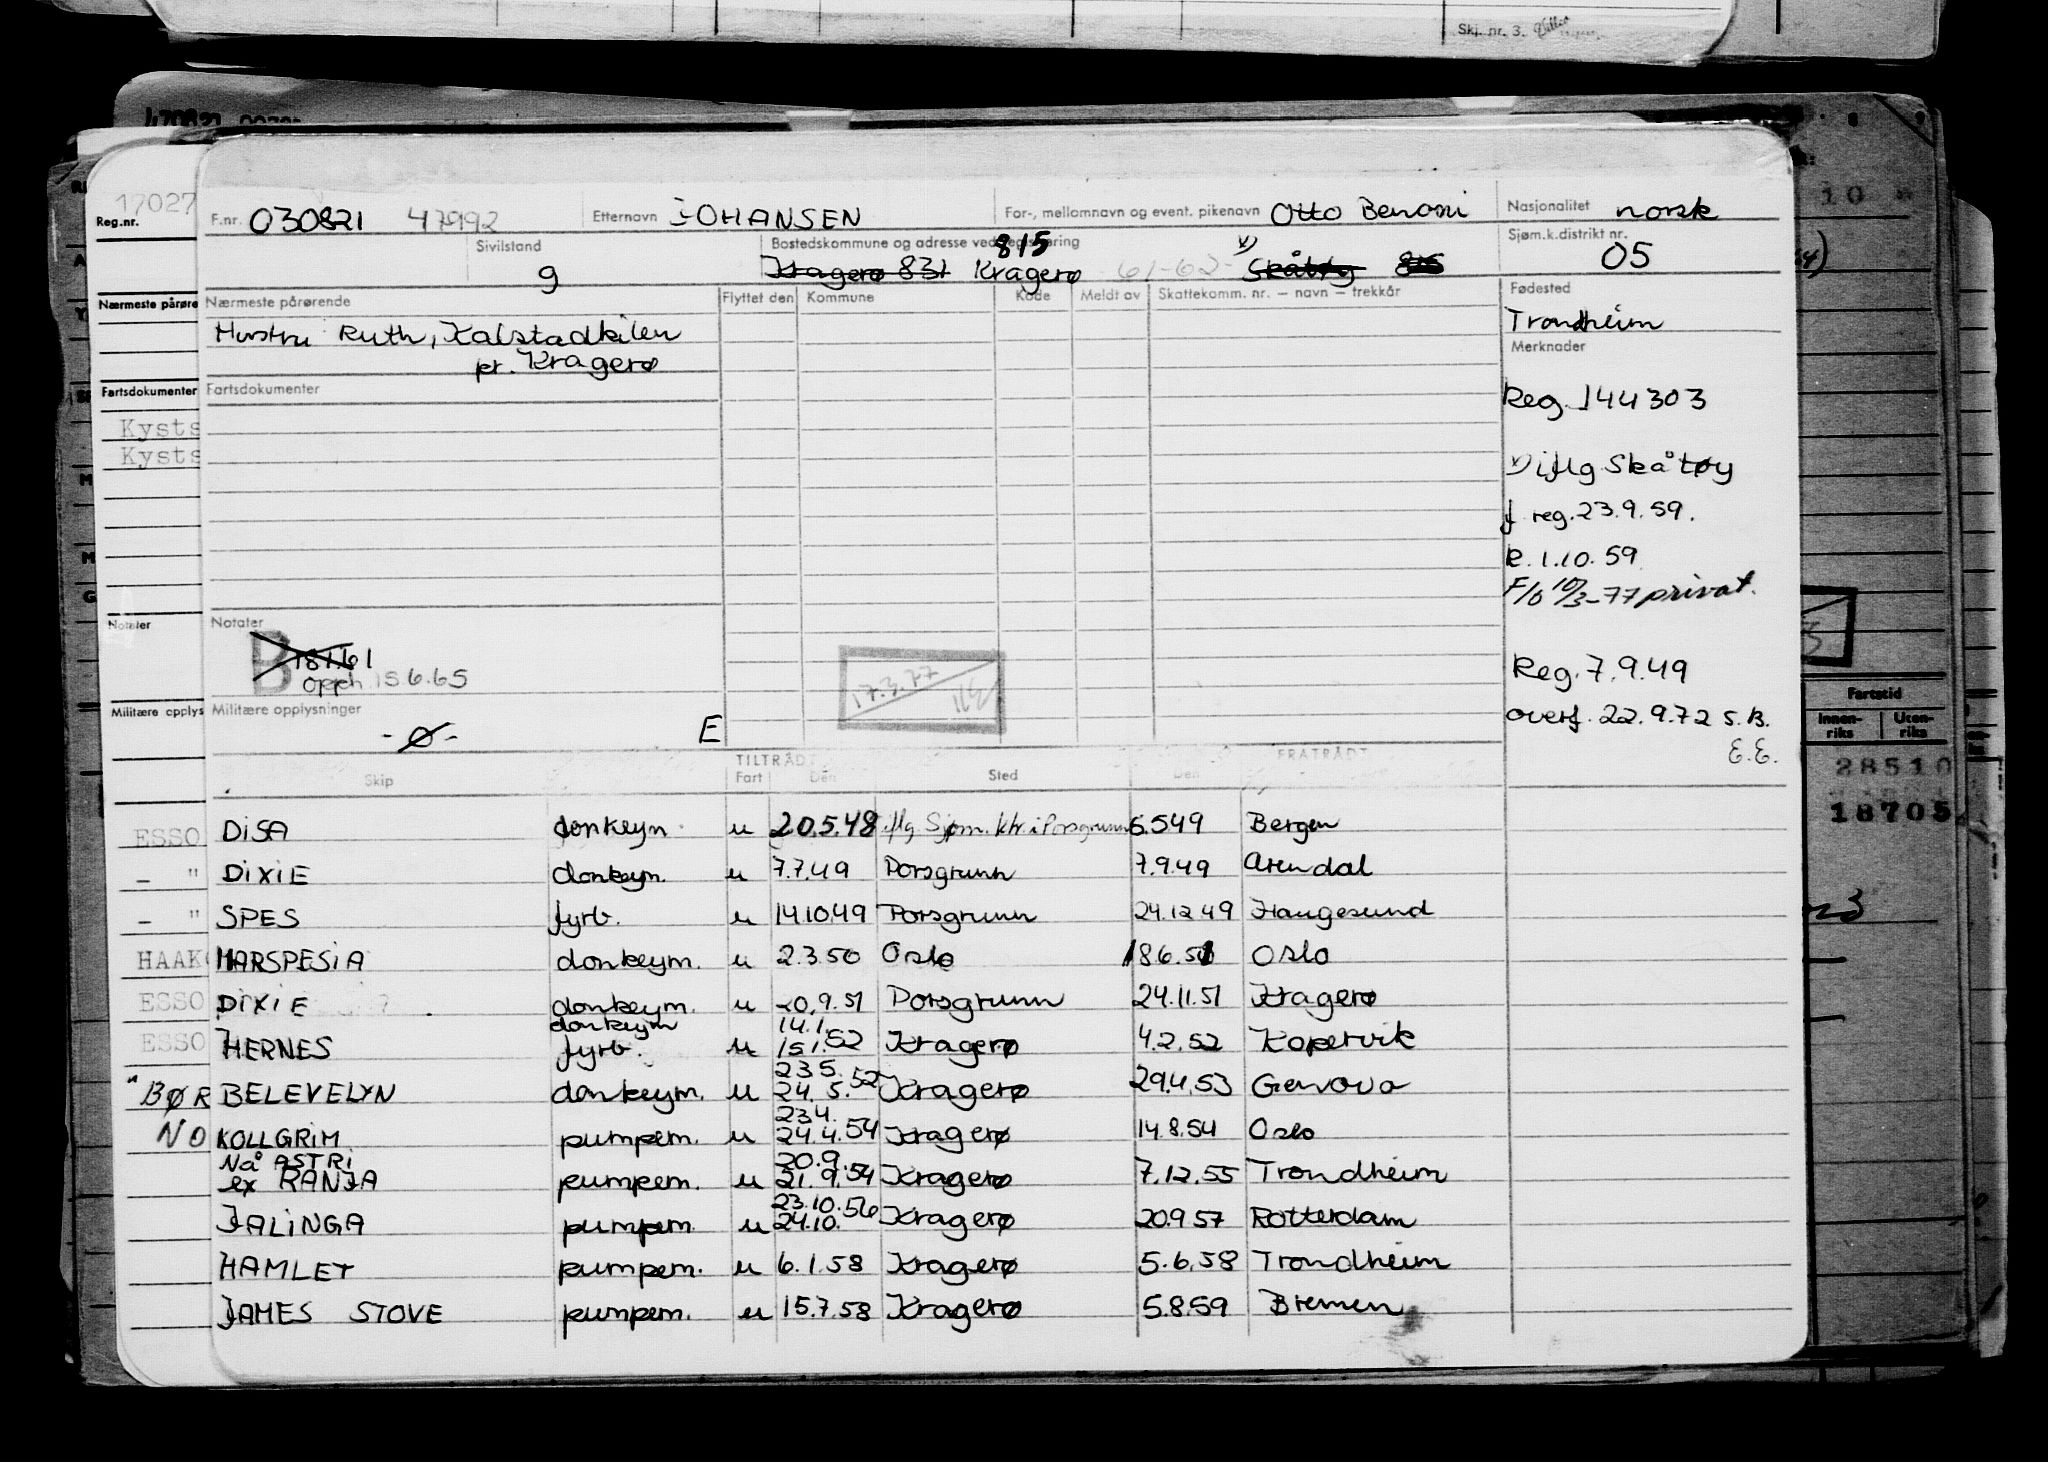 Skj. nr. 3.
F.nr. 030821 47992 Etternavn JOHANSEN For-, mellomnavn og event. pikenavn Otto Benoni Nasjonalitet norsk
Sivilstand g Bostedskommune og adresse ved registrering 815 Kragerø 831 Kragerø 61-62 1) Skåtøy 815 Sjøm.k.distrikt nr. 05
Nærmeste pårørende Flyttet den Kommune Kode Meldt av Skattekomm. nr. – navn – trekkår Fødested
Hustru Ruth, Kalstadkilen Trondheim
pr. Kragerø Merknader
Fartsdokumenter
Reg. 144303
1) iflg Skåtøy
f reg. 23.9.59.
k. 1.10.59
F/o 10/3-77 privat.
Notater
B 18.1.61
opph. 15.6.65
17.3.77
Reg. 7.9.49
Militære opplysninger
-Ø- E
overf. 22.9.72 S.B.
E.E.
TILTRÅDT FRATRÅDT
Skip Fart Den Sted Den
DISA donkeym u 20.5.48 iflg Sjøm. ktr. i Porsgrunn 6.5.49 Bergen
DIXIE donkeym. u 7.7.49 Porsgrunn 7.9.49 Arendal
SPES fyrb. u 14.10.49 Porsgrunn 24.12.49 Haugesund
MARSPESIA donkeym. u 2.3.50 Oslo 18.6.51 Oslo
DIXIE donkeym. u 20.9.51 Porsgrunn 24.11.51 Kragerø
donkeym 14.1.
HERNES fyrb. u 15.1.52 Kragerø 4.2.52 Kopervik
23.5.
BELEVELYN donkeym. u 24.5.52 Kragerø 29.4.53 Genova
23.4.
KOLLGRIM pumpem. u 24.4.54 Kragerø 14.8.54 Oslo
Nå ASTRI 20.9.
ex RANJA pumpem. u 21.9.54 Kragerø 7.12.55 Trondheim
23.10.56
JALINGA pumpem u 24.10. Kragerø 20.9.57 Rotterdam
HAMLET pumpem. u 6.1.58 Kragerø 5.6.58 Trondheim
JAMES STOVE pumpem. u 15.7.58 Kragerø 5.8.59 Bremen
17027
Reg.nr.
Nærmeste pårøre
Fartsdokumenter
Kysts
Kysts
Notater
Militære opplys
ESSO
– "
– "
HAAK
ESSO
ESSO
BØR
NO
10
Fartstid
Innen-riks Uten-riks
28510
18705